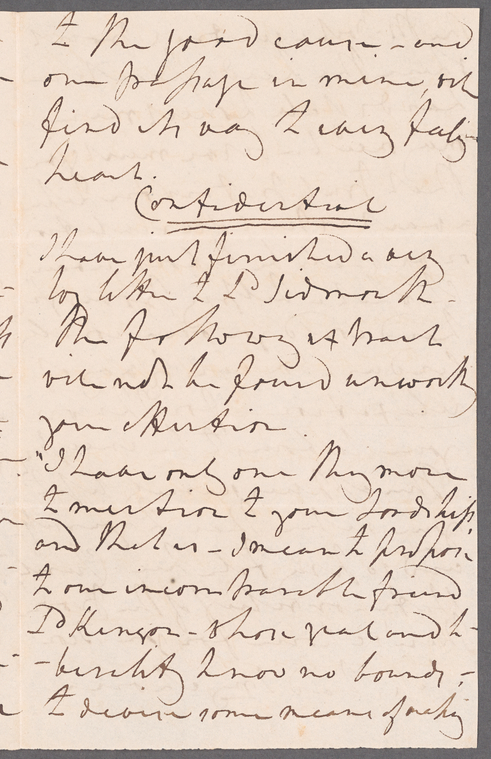 to the good cause - and
one passage in mine, will
find its way to every feeling
heart.
Confidential
I have just finished a very
long letter to Ld Sidmouth -
The following extract
will not be found unworthy
your attention.
"I have only one thing more
to mention to your Lordship
and that is - I mean to propose
to our incomparable friend
Ld Kenyon - whose zeal and li-
-berality know no bounds,
to devise some means of making